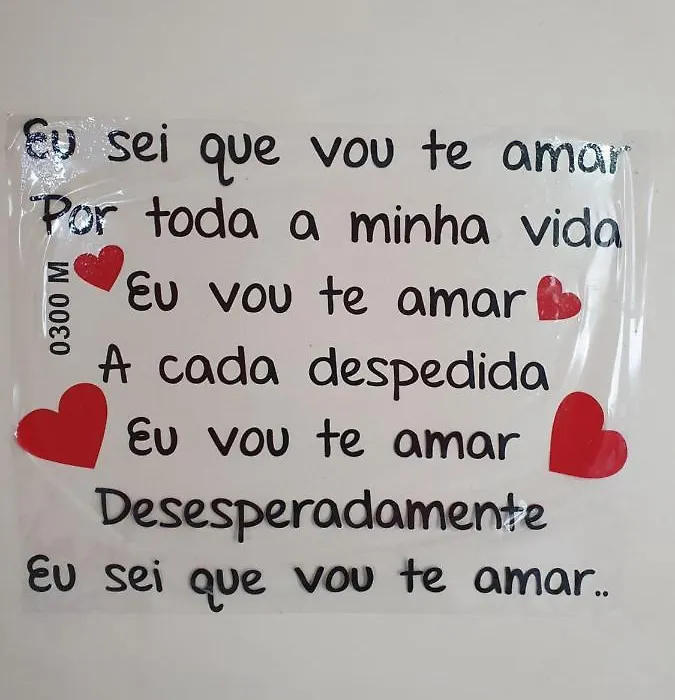 Eu sei que vou te amar
Por toda a minha vida
Eu vou te amar
0300 M
A cada despedida
Eu vou te amar
Desesperadamente
Eu sei que vou te amar..